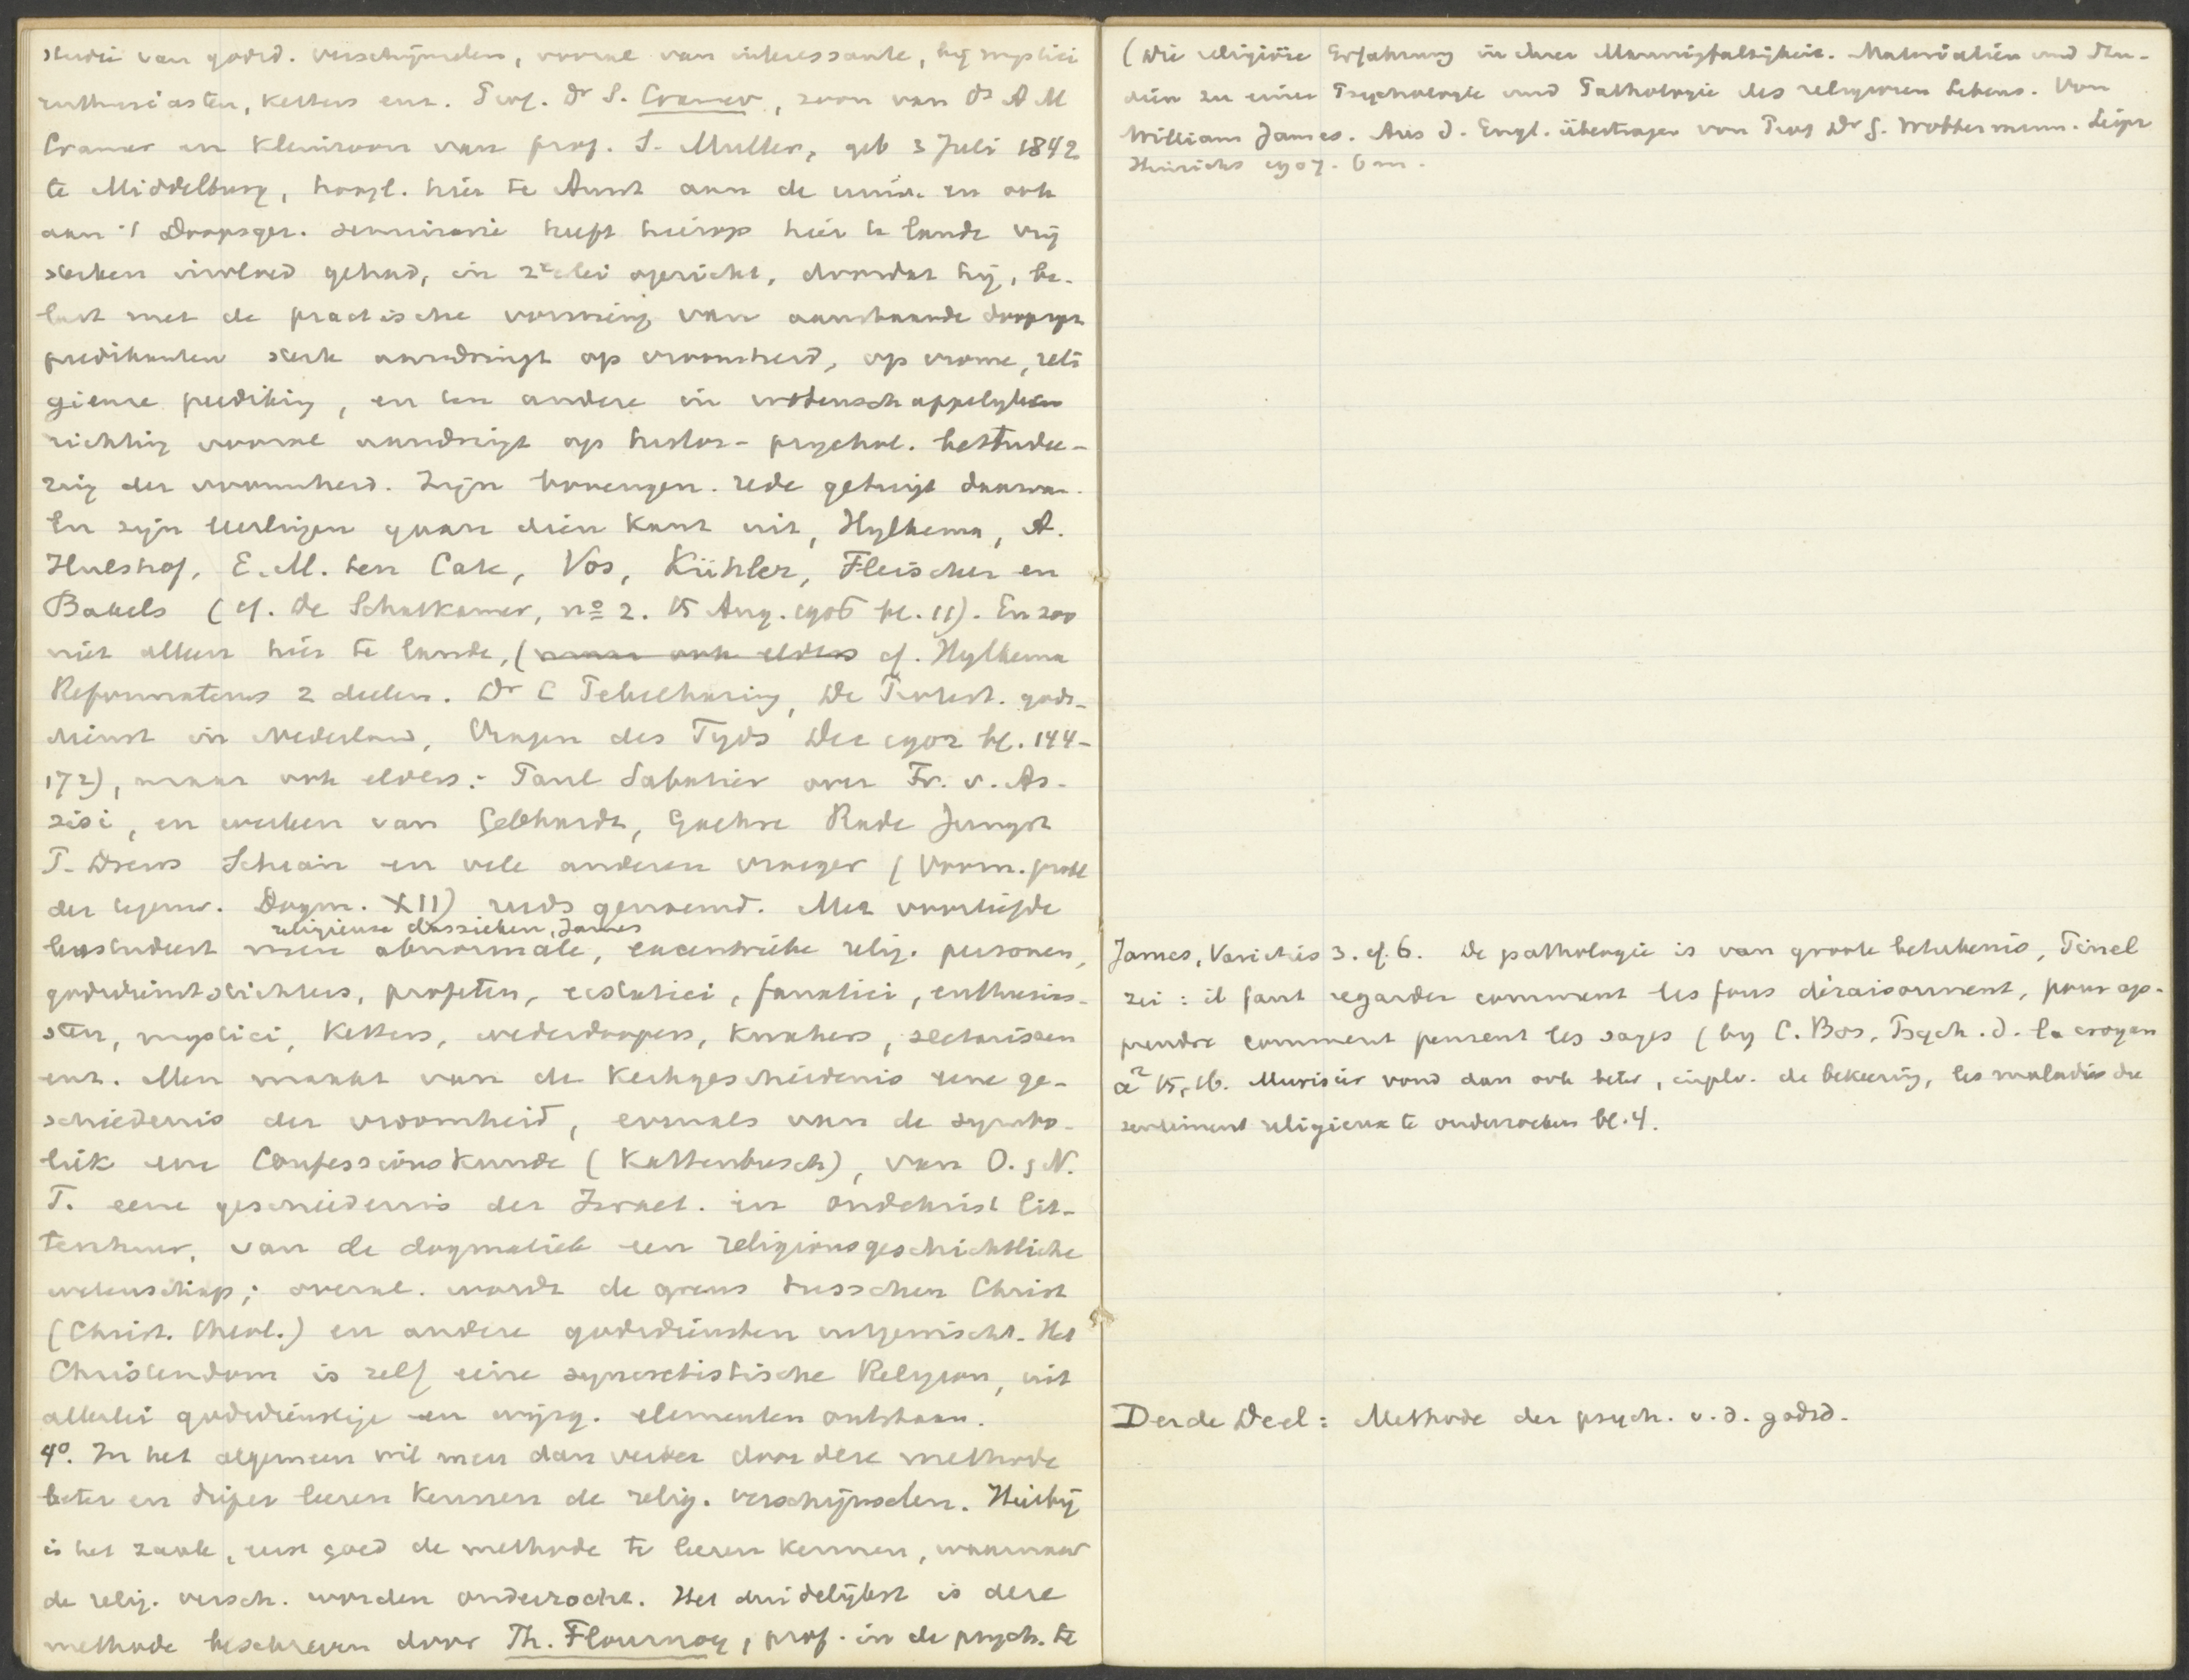 studie van godsd. verschijnselen, vooral van interessante, bij mystici
enthusiasten, ketters enz. Prof. Dr S. Cramer, zoon van Ds A M
Cramer en kleinzoon van prof. S. Muller, geb 3 Juli 1842
te Middelburg, hoogl. hier te Amst aan de univ. en ook
aan 't Doopsgez. seminarie heeft hierop hier te lande vrij
sterken invloed gehad, in 2erlei opzicht, doordat hij, be-
last met de practische vorming van aanstaande doopsgez
predikanten sterk aandringt op vroomheid, op vrome, reli
gieuse prediking, en ten andere in wetenschappelyken
richting vooral aandringt op histor-psychol. bestudee-
ring der vroomheid. Zijn bovengen. rede getuigt daarvan.
En zijn leerlingen gaan dien kant uit, Hylkema, A.
Hulshof, E.M. ten Cate, Vos, Kühler, Fleischer en
Bakels (cf. De Schatkamer, no 2. 15 Aug. 1906 bl. 11). En zoo
niet alleen hier te lande, (maar ook elders cf. Hylkema
Reformateurs 2 deelen. Dr L Knappert, De Protest. gods-
dienst in Nederland, Vragen des Tyds Dec 1902 bl. 144-
172), maar ook elders: Paul Sabatier over Fr. v. As-
sisi, en werken van Gebhardt, Goehre Rade Jungst
P. Drews Schian en vele anderen vroeger (Voorn. probl
der tegenw. Dogm. XII) reeds genoemd. Met voorliefde
religieuse classieken, James
bestudeert men abnormale, excentrieke relig. personen,
godsdienststichters, profeten, ecstatici, fanatici, enthusias-
ten, mystici, ketters, wederdoopers, kwakers, sectarissen
enz. Men maakt van de kerkgeschiedenis eene ge-
schiedenis der vroomheid, evenals van de symbo-
liek eene Confessionskunde (Kattenbusch), van O. & N.
T. eene geschiedenis der Israel. en oudchrist lit-
teratuur, van de dogmatiek een religionsgeschichtliche
wetenschap; overal. wordt de grens tusschen Christ
(Christ. theol.) en andere godsdiensten uitgewischt. Het
Christendom is zelf eene syncretistische Religion, uit
allerlei godsdienstige en wijsg. elementen ontstaan.
4o. In het algemeen wil men dan verder door deze methode
beter en dieper leeren kennen de relig. verschijnselen. Hierbij
is het zaak, eerst goed de methode te leeren kennen, waarnaar
de relig. versch. worden onderzocht. Het duidelijkst is deze
methode beschreven door Th. Flournoy, prof. in de psych. te
(Die religiöse Erfahrung in ihrer Mannigfaltigkeit. Materialien und Stu-
dien zu einer Psychologie und Pathologie des religiösen Lebens. Von
William James. Aus d. Engl. übertragen von Prof Dr G. Wobbermin. Leipz
Hinrichs 1907. 6 m.
James, Varieties 3. cf. 6. De pathologie is van groote beteekenis, Pinel
zei: il faut regarder comment les fous déraisonnent, pour ap-
prendre comment pensent les sages (by C. Bos, Psych. d. la croyan
ce2 15, 16. Murisier vond dan ook beter, in plv. de bekeering, les maladies du
sentiment religieux te onderzoeken bl. 4.
Derde Deel: Methode der psych. v. d. godsd.